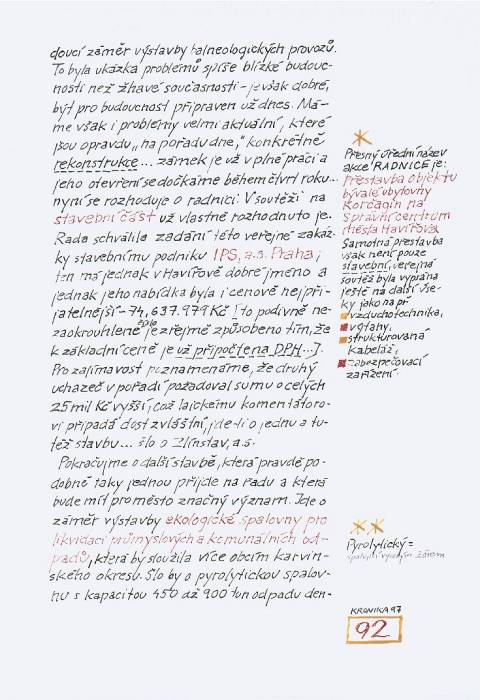 doucí záměr výstavby balneologických provozů.
To byla ukázka problémů spíše blízké budouc-
nosti než žhavé současnosti - je však dobré,
být pro budoucnost připraven už dnes. Má-
me však i problémy velmi aktuální, které
jsou opravdu „na pořadu dne," konkrétně
rekonstrukce... zámek je už v plné práci a
jeho otevření se dočkáme během čtvrt roku...
nyní se rozhoduje o radnici. V soutěži na
stavební část už vlastně rozhodnuto je.
Rada schválila zadání této veřejné zakáz-
ky stavebnímu podniku IPS, a.s. Praha;
ten má jednak v Havířově dobré jméno a
jednak jeho nabídka byla i cenově nejpři-
jatelnější - 74,637.979 Kč [to podivně ne-
zaokrouhlené číslo je zřejmě způsobeno tím, že
k základní ceně je už připočtena DPH...].
Pro zajímavost poznamenáme, že druhý
uchazeč v pořadí požadoval sumu o celých
25 mil Kč vyšší, což laickému komentátoro-
vi připadá dost zvláštní, jde-li o jednu a tu-
též stavbu... šlo o Zlínstav, a.s.
Pokračujme o další stavbě, která pravdě po-
dobně taky jednou přijde na řadu a která
bude mít pro město značný význam. Jde o
záměr výstavby ekologické spalovny pro
likvidaci průmyslových a komunálních od-
padů, která by sloužila více obcím karvin-
ského okresu. Šlo by o pyrolytickou spalov-
nu s kapacitou 450 až 900 tun odpadu den-
Přesný úřední název
akce RADNICE je:
Přestavba objektu
bývalé ubytovny
Korčagin na
Správní centrum
města Havířova.
Samotná přestavba
však není pouze
stavební, veřejná
soutěž byla vypsána
ještě na další vše-
ky jako na př.
vzduchotechnika,
výtahy,
strukturovaná
kabeláž,
zabezpečovací
zařízení.
Pyrolytický =
žárem
KRONIKA 97
92